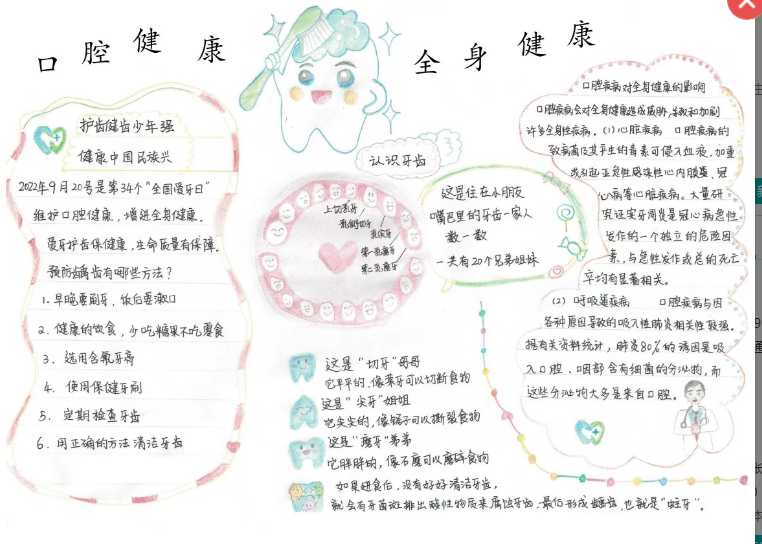 口腔健康 全身健康
护齿健齿少年强
健康中国民族兴
2022年9月20号是第34个“全国爱牙日”
维护口腔健康，增进全身健康。
爱牙护齿保健康，生命质量有保障。
预防龋齿有哪些方法？
1. 早晚要刷牙，饭后要漱口
2. 健康的饮食，少吃糖果不吃零食
3. 选用含氟牙膏
4. 使用保健牙刷
5. 定期检查牙齿
6. 用正确的方法清洁牙齿
认识牙齿
上切乳牙
乳侧切牙
乳尖牙
第一乳磨牙
第二乳磨牙
这是住在小朋友
嘴巴里的牙齿一家人
数一数
一共有20个兄弟姐妹
这是“切牙”哥哥
它平平的，像菜刀可以切断食物
这是“尖牙”姐姐
它尖尖的，像锥子可以撕裂食物
这是“磨牙”弟弟
它胖胖的，像石磨可以磨碎食物
如果进食后，没有好好清洁牙齿，
就会有牙菌斑排出酸性物质来腐蚀牙齿，最后形成龋齿，也就是“蛀牙”。
口腔疾病对全身健康的影响
口腔疾病会对全身健康造成威胁，导致和加剧
许多全身性疾病。(1) 心脏疾病 口腔疾病的
致病菌及其产生的毒素可侵入血液，加重
或引起亚急性感染性心内膜炎、冠
心病等心脏疾病。大量研
究证实牙周炎是冠心病急性
发作的一个独立的危险因
素，与急性发作或总的死亡
率均有显著相关。
(2) 呼吸道疾病 口腔疾病与因
各种原因导致的吸入性肺炎相关性较强。
据有关资料统计，肺炎80%的诱因是吸
入口腔、咽部含有细菌的分泌物，而
这些分泌物大多是来自口腔。